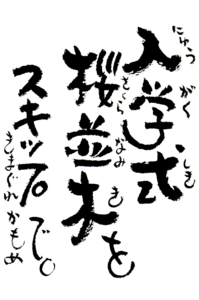 入学式
にゅうがくしき
桜並木を
さくらなみき
スキップで。
きまぐれかもめ